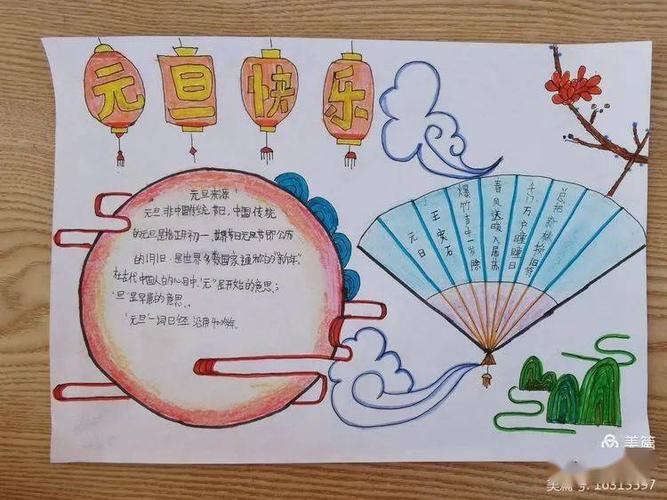 元旦快乐
元旦来源
元旦非中国传统节日,中国传统
的元旦是指正月初一,
的1月1日,是世界多数国家通称的"新年"
在古代中国人的心目中"元"是开始的意思;
"旦"是早晨的意思.
"元旦"一词已经沿用
元日
王安石
爆竹声中一岁除
春风送暖入屠苏
千门万户曈曈日
总把新桃换旧符
美篇
美篇号:10313397